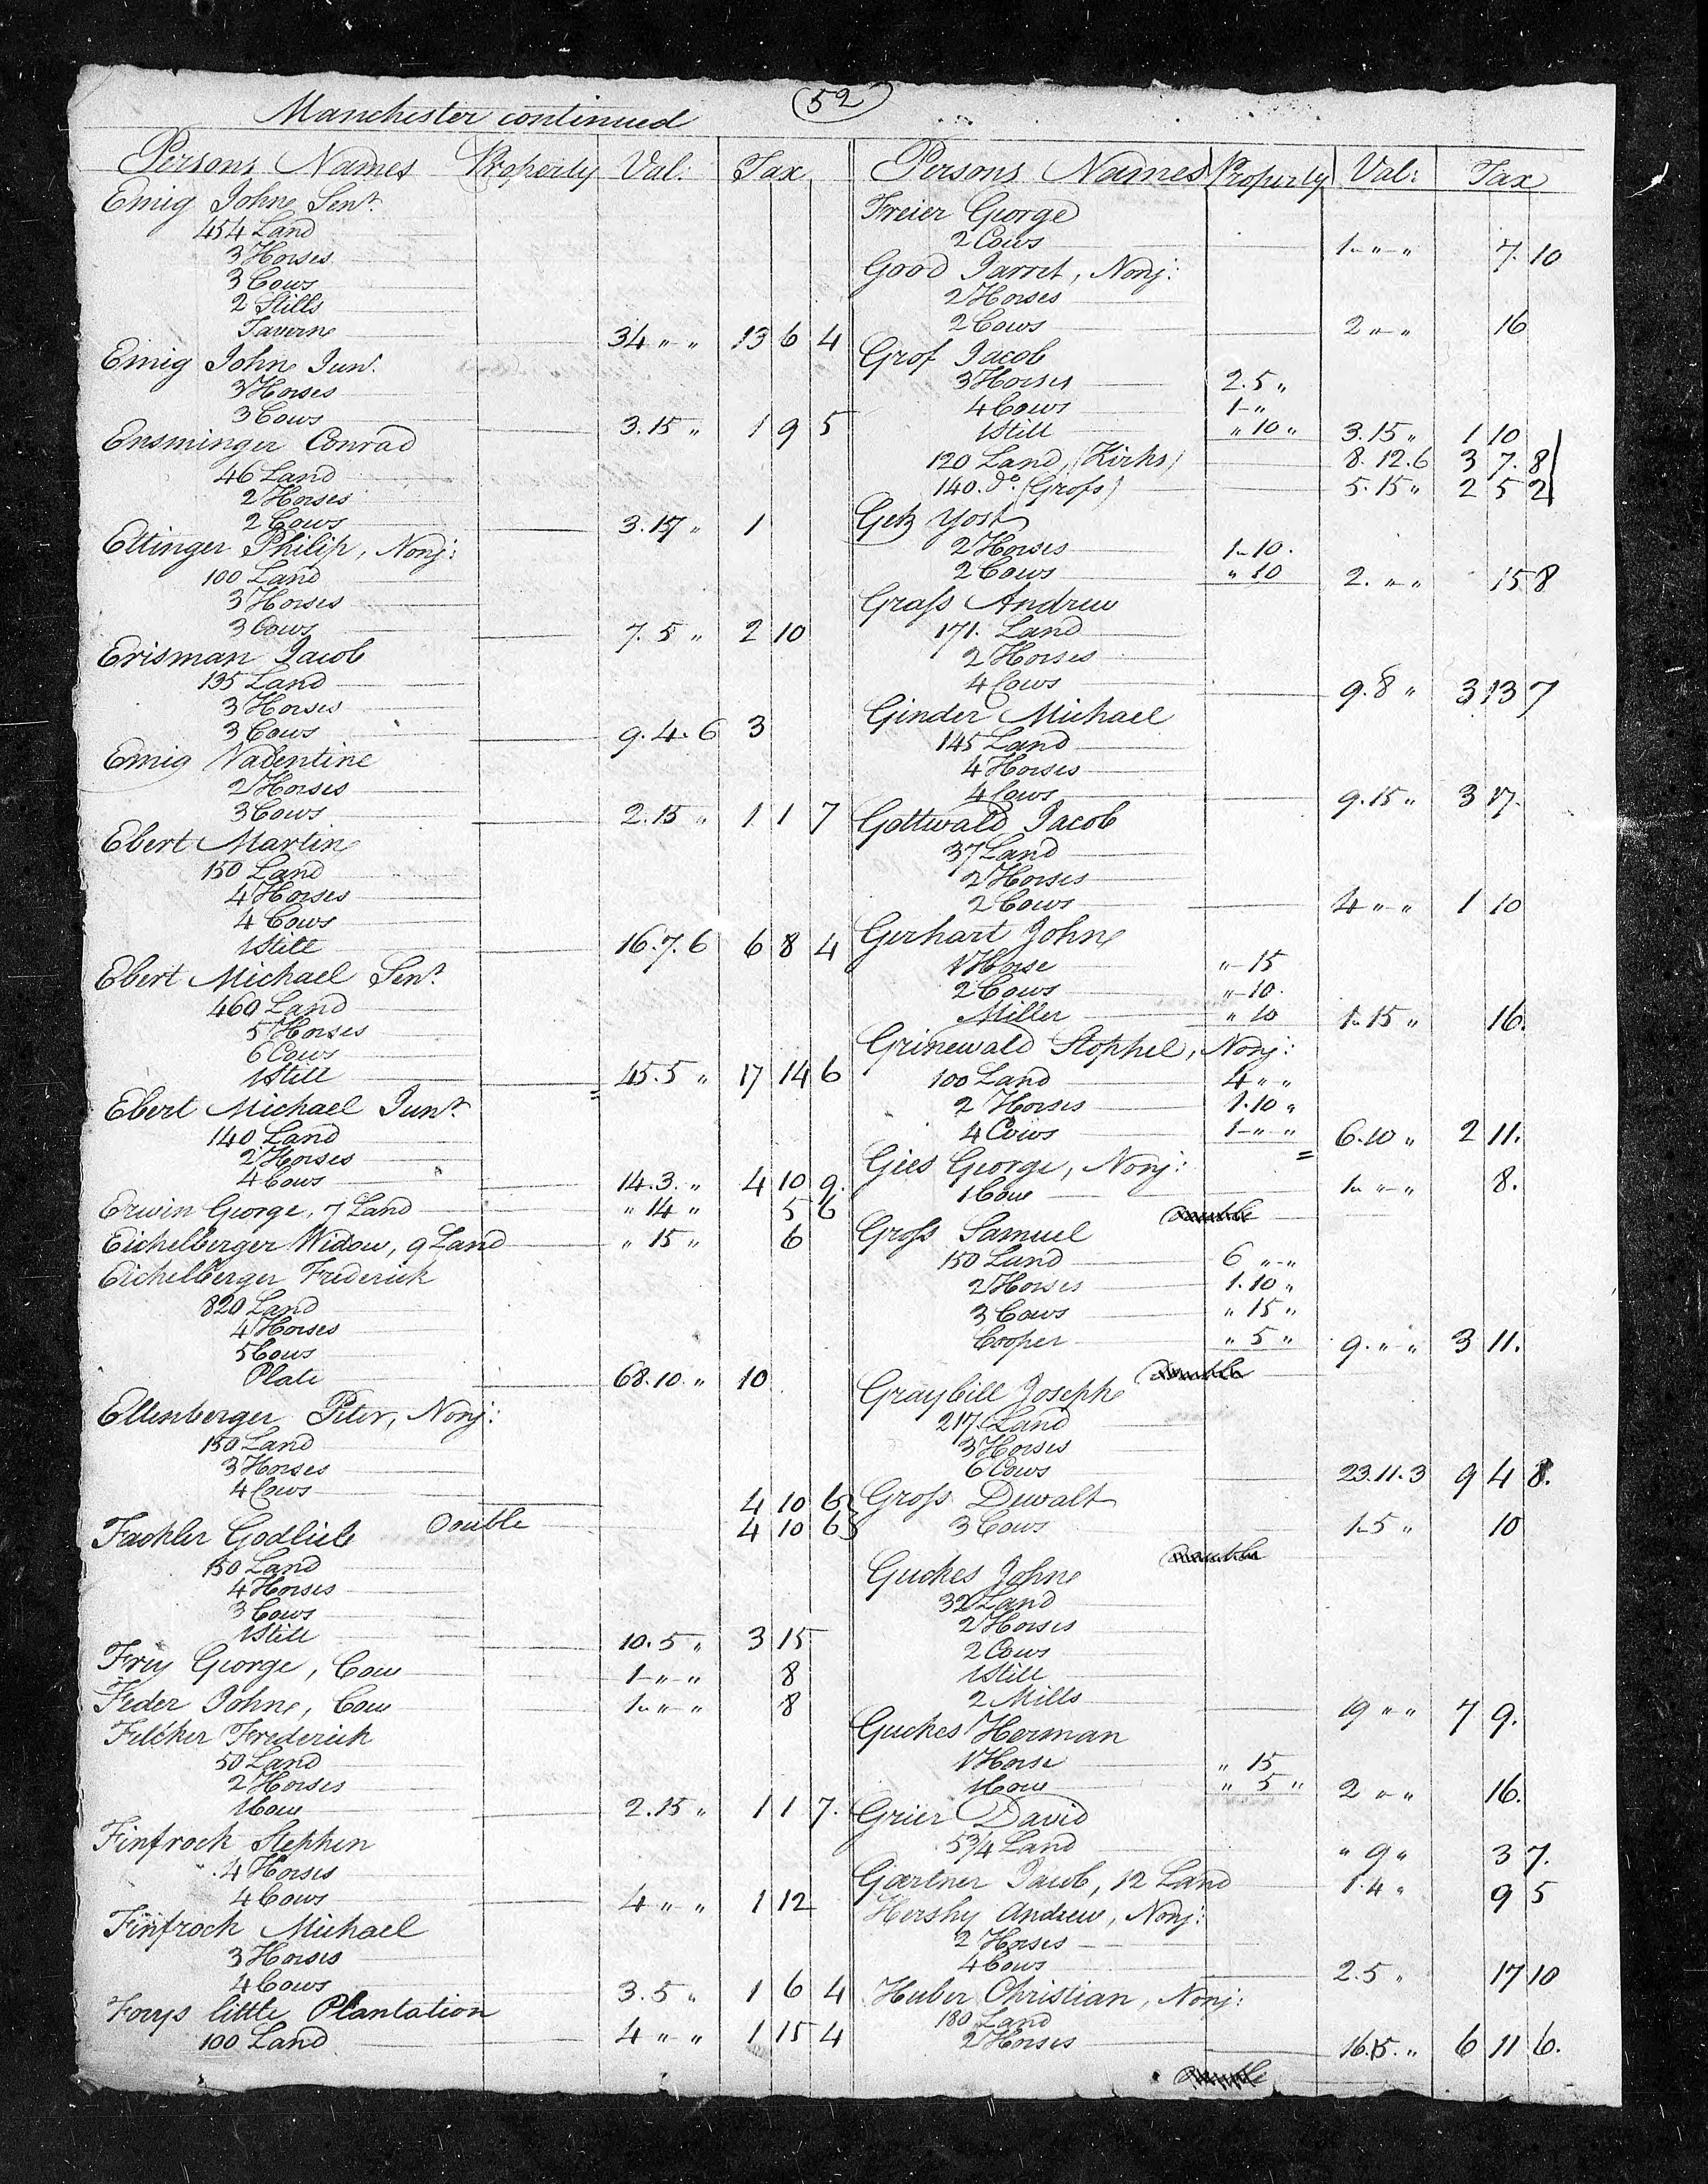 Manchester continued
52
Persons Names Property Val: Tax
Emig John Senr.
454 Land
3 Horses
3 Cows
2 Stills
Tavern 34 " " 13 6 4
Emig John Junr.
3 Horses
3 Cows 3.15 " 1 9 5
Ensminger Conrad
46 Land
2 Horses
2 Cows 3.17 " 1
Ettinger Philip, Nonj:
100 Land
3 Horses
3 Cows 7.5 " 2 10
Erisman Jacob
135 Land
3 Horses
3 Cows 9.4.6 3
Emig Valentine
2 Horses
3 Cows 2.15 " 1 1 7
Ebert Martin
150 Land
4 Horses
4 Cows
1 Still 16.7.6 6 8 4
Ebert Michael Senr.
460 Land
5 Horses
6 Cows
1 Still 45.5 " 17 14 6
Ebert Michael Junr.
140 Land
2 Horses
4 Cows 14.3. " 4 10 9.
Erwin George, 7 Land " 14 " 5 6
Eichelberger Widow, 9 Land " 15 " 6
Eichelberger Frederick
820 Land
4 Horses
5 Cows
Plate 68.10. " 10
Ellenberger Peter, Nonj:
150 Land
3 Horses
4 Cows 4 10 6
Double 4 10 6
Fackler Godlieb
150 Land
4 Horses
3 Cows
1 Still 10.5 " 3 15
Frey George, Cow 1 - " - " 8
Feder John, Cow 1 - " - " 8
Filcker Frederick
50 Land
2 Horses
1 Cow 2.15 " 1 1 7.
Finfrock Stephen
4 Horses
4 Cows 4 " " 1 12
Finfrock Michael
3 Horses
4 Cows 3.5 " 1 6 4
Forys little Plantation
100 Land 4 " " 1 15 4
Persons Names Property Val: Tax
Freier George
2 Cows 1 - " - " 7. 10
Good Jarret, Nonj:
2 Horses
2 Cows 2 " " 16
Grof Jacob
3 Horses 2.5 "
4 Cows 1 - "
1 Still " 10 " 3.15 " 1 10
120 Land, (Kirks) 8.12.6 3 7. 8
140. do. (Grofs) 5.15 " 2 5 2
Getz Yost
2 Horses 1 - 10.
2 Cows " 10 2. " " 15 8
Grass Andrew
171. Land
2 Horses
4 Cows 9.8 " 3 13 7
Ginder Michael
145 Land
4 Horses
4 Cows 9.15 " 3 17.
Gottwald Jacob
37 Land
2 Horses
2 Cows 4 " " 1 10
Gerhart John
1 Horse " - 15
2 Cows " - 10.
Miller " 10 1 - 15 " 16.
Grinewald Stophel, Nonj:
100 Land 4 " "
2 Horses 1.10 "
4 Cows 1 - " " 6.10 " 2 11.
Gies George, Nonj:
1 Cow 1 - " - " 8.
Double
Gross Samuel
150 Land 6 " - "
2 Horses 1.10 "
3 Cows " 15 "
Cooper " 5 " 9. " " 3 11.
Double
Graybill Joseph
217. Land
3 Horses
6 Cows 23.11.3 9 4 8.
Gross Dewalt
3 Cows 1 - 5 " 10
Double
Guckes John
32 Land
2 Horses
2 Cows
1 Still
2 Mills 19 " " 7 9.
Guckes Herman
1 Horse " 15
1 Cow " 5 " 2 " " 16.
Grier David
5 3/4 Land " 9 " 3 7.
Gartner Jacob, 12 Land 1.4 " 9 5
Hershy Andrew, Nonj:
2 Horses
4 Cows 2.5 " 17 10
Huber Christian, Nonj:
180 Land
2 Horses 16.15. " 6 11 6.
Double